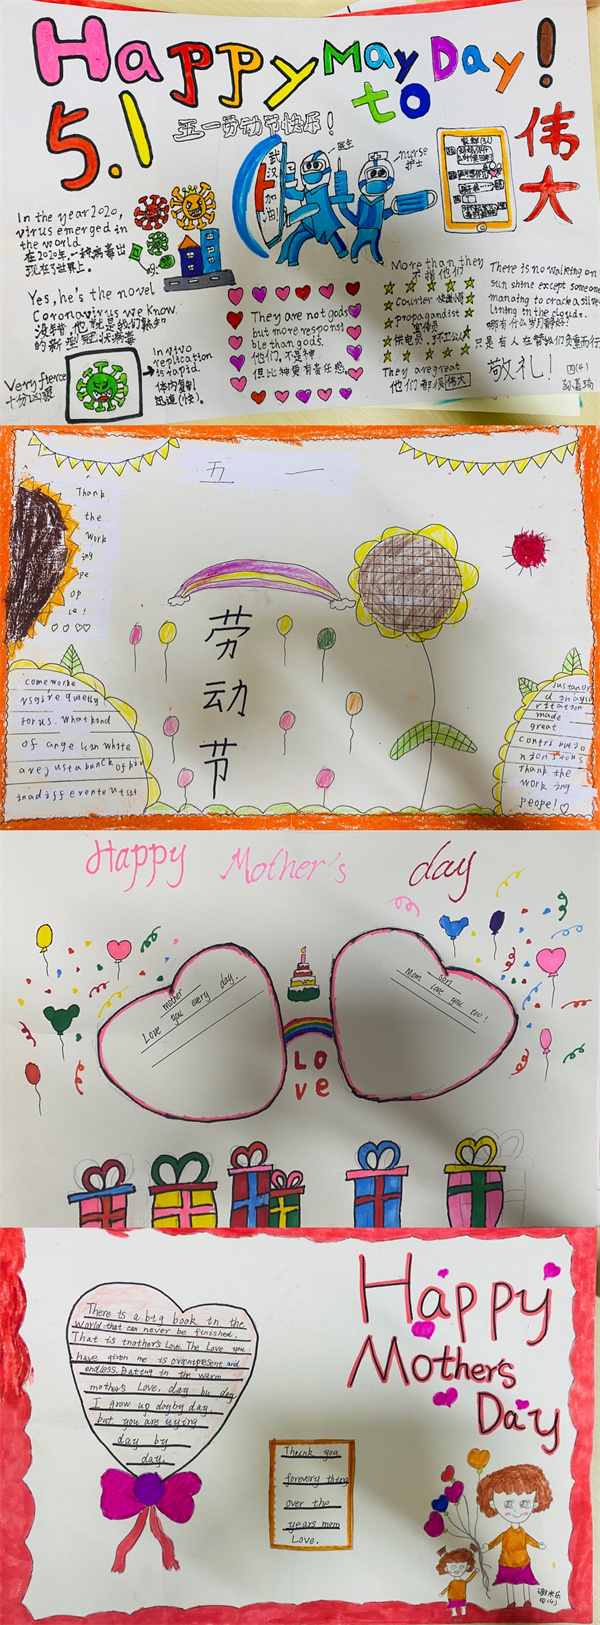 Happy May Day!
to
5.1
五一劳动节快乐!
伟大
武汉加油!
医生
nurse
护士
In the year 2020,
virus emerged in
the world
在2020年,一种病毒出
现在了世界上。
Yes, he's the novel
Coronavirus we know.
没错,他就是我们熟知
的新型冠状病毒
Very fierce
十分凶狠
In vivo
replication
is rapid
体内复制
迅速(快)。
They are not gods
but more responsi
ble than gods.
他们,不是神
但比神更有责任感
More than they
不指他们
Courier 快递小哥
propagandist
宣传员
供电员
They are great
他们都很伟大
There is no walking on
sun shine except someone
managing to crack a silver
lining in the clouds.
哪有什么岁月静好?
只是有人在替我们负重而行
敬礼!
四(4)
五 一
劳
动
节
Thank
the
Work
ing
pe
op
le!
come worke
rsgive quietly
for us. What kind
of ange lisn white
are, just a banck of pin
inadifferente
made
great
contributio
Thank the
work ing
peope!
Happy Mother's day
mother
Love you every day.
Mom son
love you too!
LO
ve
Happy
Mother's
Day
There is a big book in the
World that can never be finished.
That is mothers Love. The Love you
have given me is omnipresent and
endless. Bating in the warm
mothers Love. day by day
I grow up dayby day.
but you are trying
day by
day.
Thank you
forevery thing
over the
years mom
Love.
四(4)